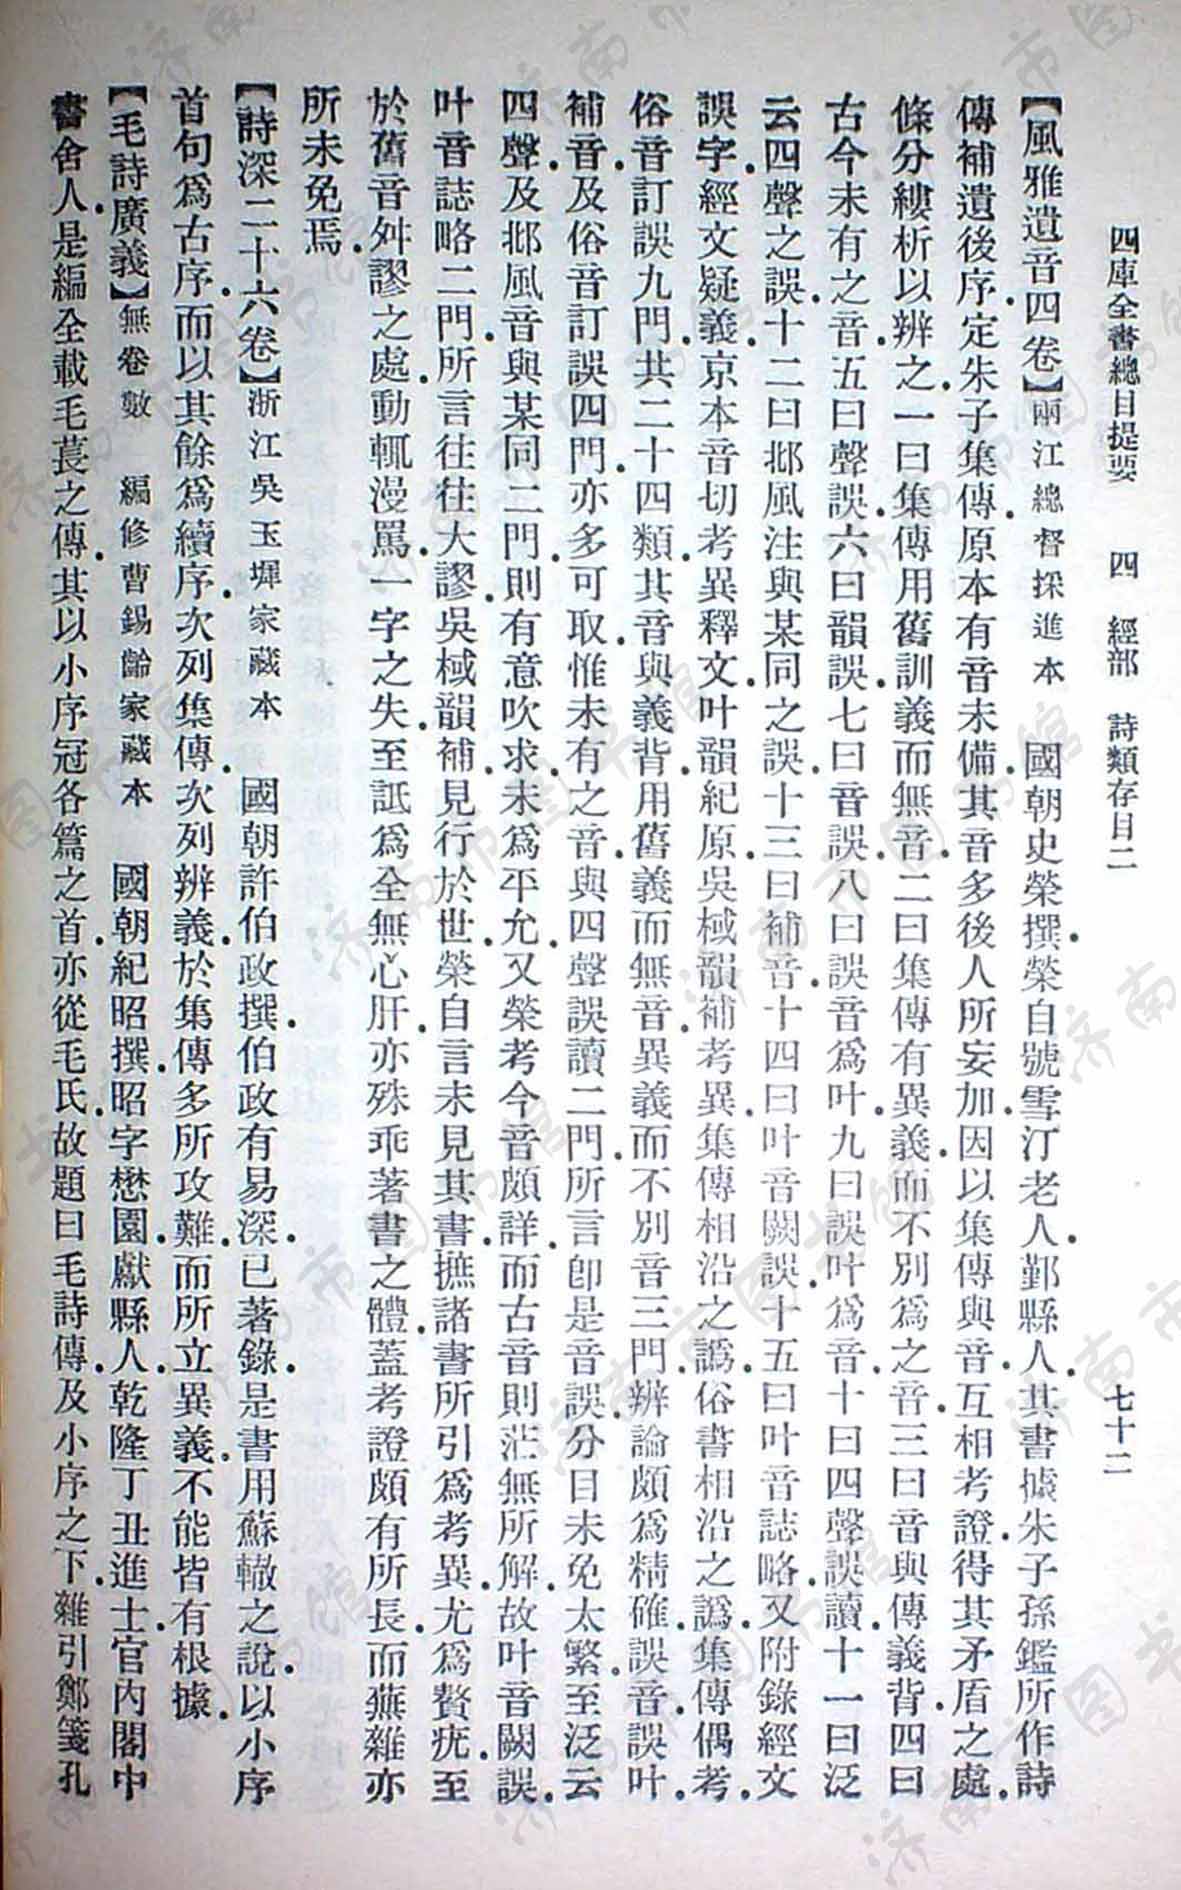 四庫全書總目提要　四　經部　詩類存目二　七十二
【風雅遺音四卷】兩江總督採進本　國朝史榮撰榮自號雪汀老人鄞縣人其書據朱子孫鑑所作詩
傳補遺後序定朱子集傳原本有音未備其音多後人所妄加因以集傳與音互相考證得其矛盾之處
條分縷析以辨之一曰集傳用舊訓義而無音二曰集傳有異義而不別爲之音三曰音與傳義背四曰
古今未有之音五曰聲誤六曰韻誤七曰音誤八曰誤音爲叶九曰誤叶爲音十曰四聲誤讀十一曰泛
云四聲之誤十二曰邶風注與某同之誤十三曰補音十四曰叶音闕誤十五曰叶音誌略又附錄經文
誤字經文疑義京本音切考異釋文叶韻紀原吳棫韻補考異集傳相沿之譌俗書相沿之譌集傳偶考
俗音訂誤九門共二十四類其音與義背用舊義而無音異義而不別音三門辨論頗爲精確誤音誤叶
補音及俗音訂誤四門亦多可取惟未有之音與四聲誤讀二門所言卽是音誤分目未免太繁至泛云
四聲及邶風音與某同二門則有意吹求未爲平允又榮考今音頗詳而古音則茫無所解故叶音闕誤
叶音誌略二門所言往往大謬吳棫韻補見行於世榮自言未見其書摭諸書所引爲考異尤爲贅疣至
於舊音舛謬之處動輒漫罵一字之失至詆爲全無心肝亦殊乖著書之體蓋考證頗有所長而蕪雜亦
所未免焉
【詩深二十六卷】浙江吳玉墀家藏本　國朝許伯政撰伯政有易深已著錄是書用蘇轍之說以小序
首句爲古序而以其餘爲續序次列集傳次列辨義於集傳多所攻難而所立異義不能皆有根據
【毛詩廣義】無卷數　編修曹錫齡家藏本　國朝紀昭撰昭字懋園獻縣人乾隆丁丑進士官內閣中
書舍人是編全載毛萇之傳其以小序冠各篇之首亦從毛氏故題曰毛詩傳及小序之下雜引鄭箋孔